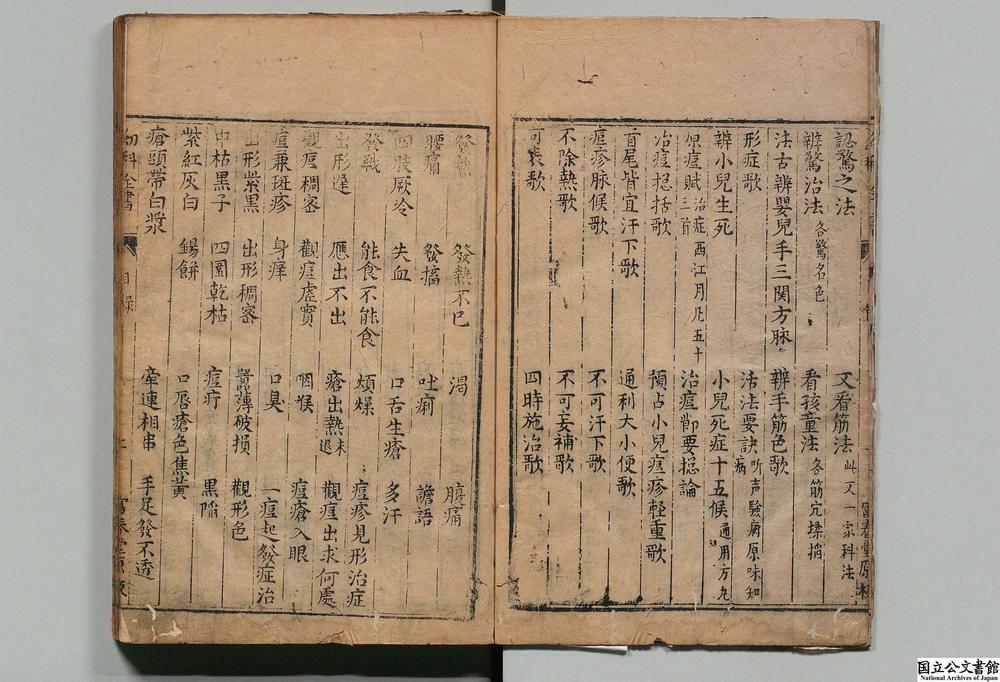 認驚之法 又看筋法 此又一家科法
辨驚治法 各驚名色 看孩童法 各筋穴揉掐
法古辨嬰兒手三関方脉 辨手筋色歌
形症歌 活法要訣 听声驗病原味知病
辨小兒生死 小兒死症十五候 通用方九
原痘賦 治症西江月凡五十三首 治痘節要摠論
治痘摠括歌 預占小兒痘疹輕重歌
首尾皆宜汗下歌 通利大小便歌
痘疹脉候歌 不可汗下歌
不除熱歌 不可妄補歌
可表歌 四時施治歌
發熱 發熱不已 渴 腹痛
腰痛 發搐 吐痢 譫語
四肢厥冷 失血 口舌生瘡 多汗
發戰 能食不能食 煩燥 痘疹見形治症
出形遲 應出不出 瘡出熱未退 觀痘出求何處
觀痘稠密 觀痘虛實 咽喉 痘瘡入眼
痘兼斑疹 身痒 口臭 一痘起發症治
出形紫黑 出形稠密 嚣薄破損 觀形色
中枯黒子 四圍乾枯 痘疔 黒陷
紫紅灰白 錫餅 口唇瘡色焦黄
瘡頭帶白漿 牽連相串 手足發不透
幼科全書 目録 上 富春堂原板
國立公文書館
National Archives of Japan